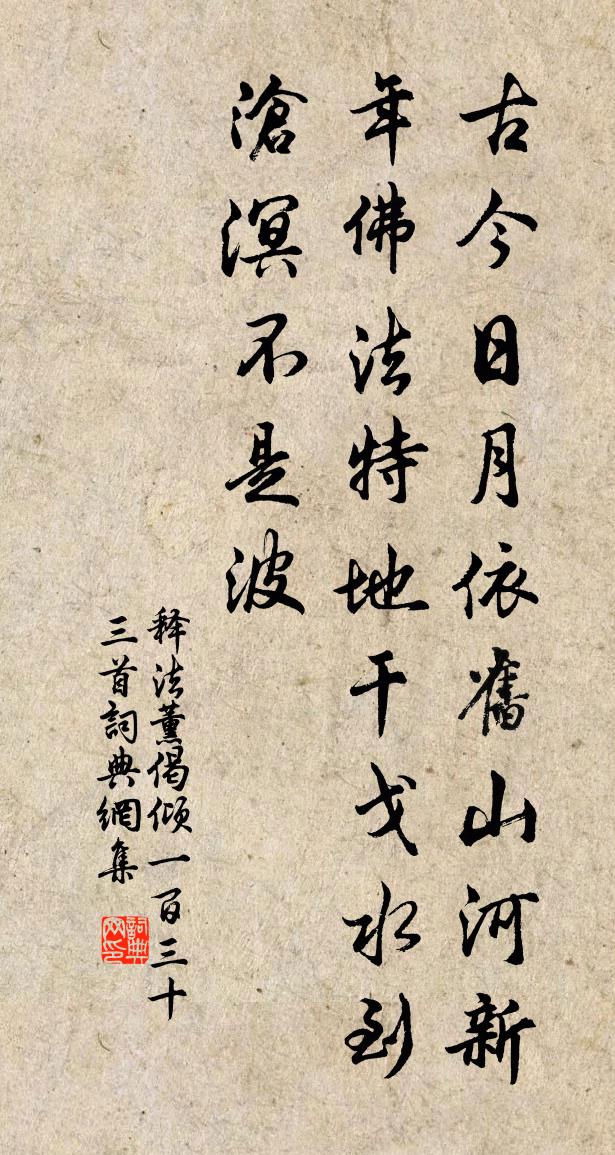 古今日月依舊山河新
年佛法特地干戈水到
滄溟不是波
释法薰偈倾一百三十
三首詞典網集
詞典网印